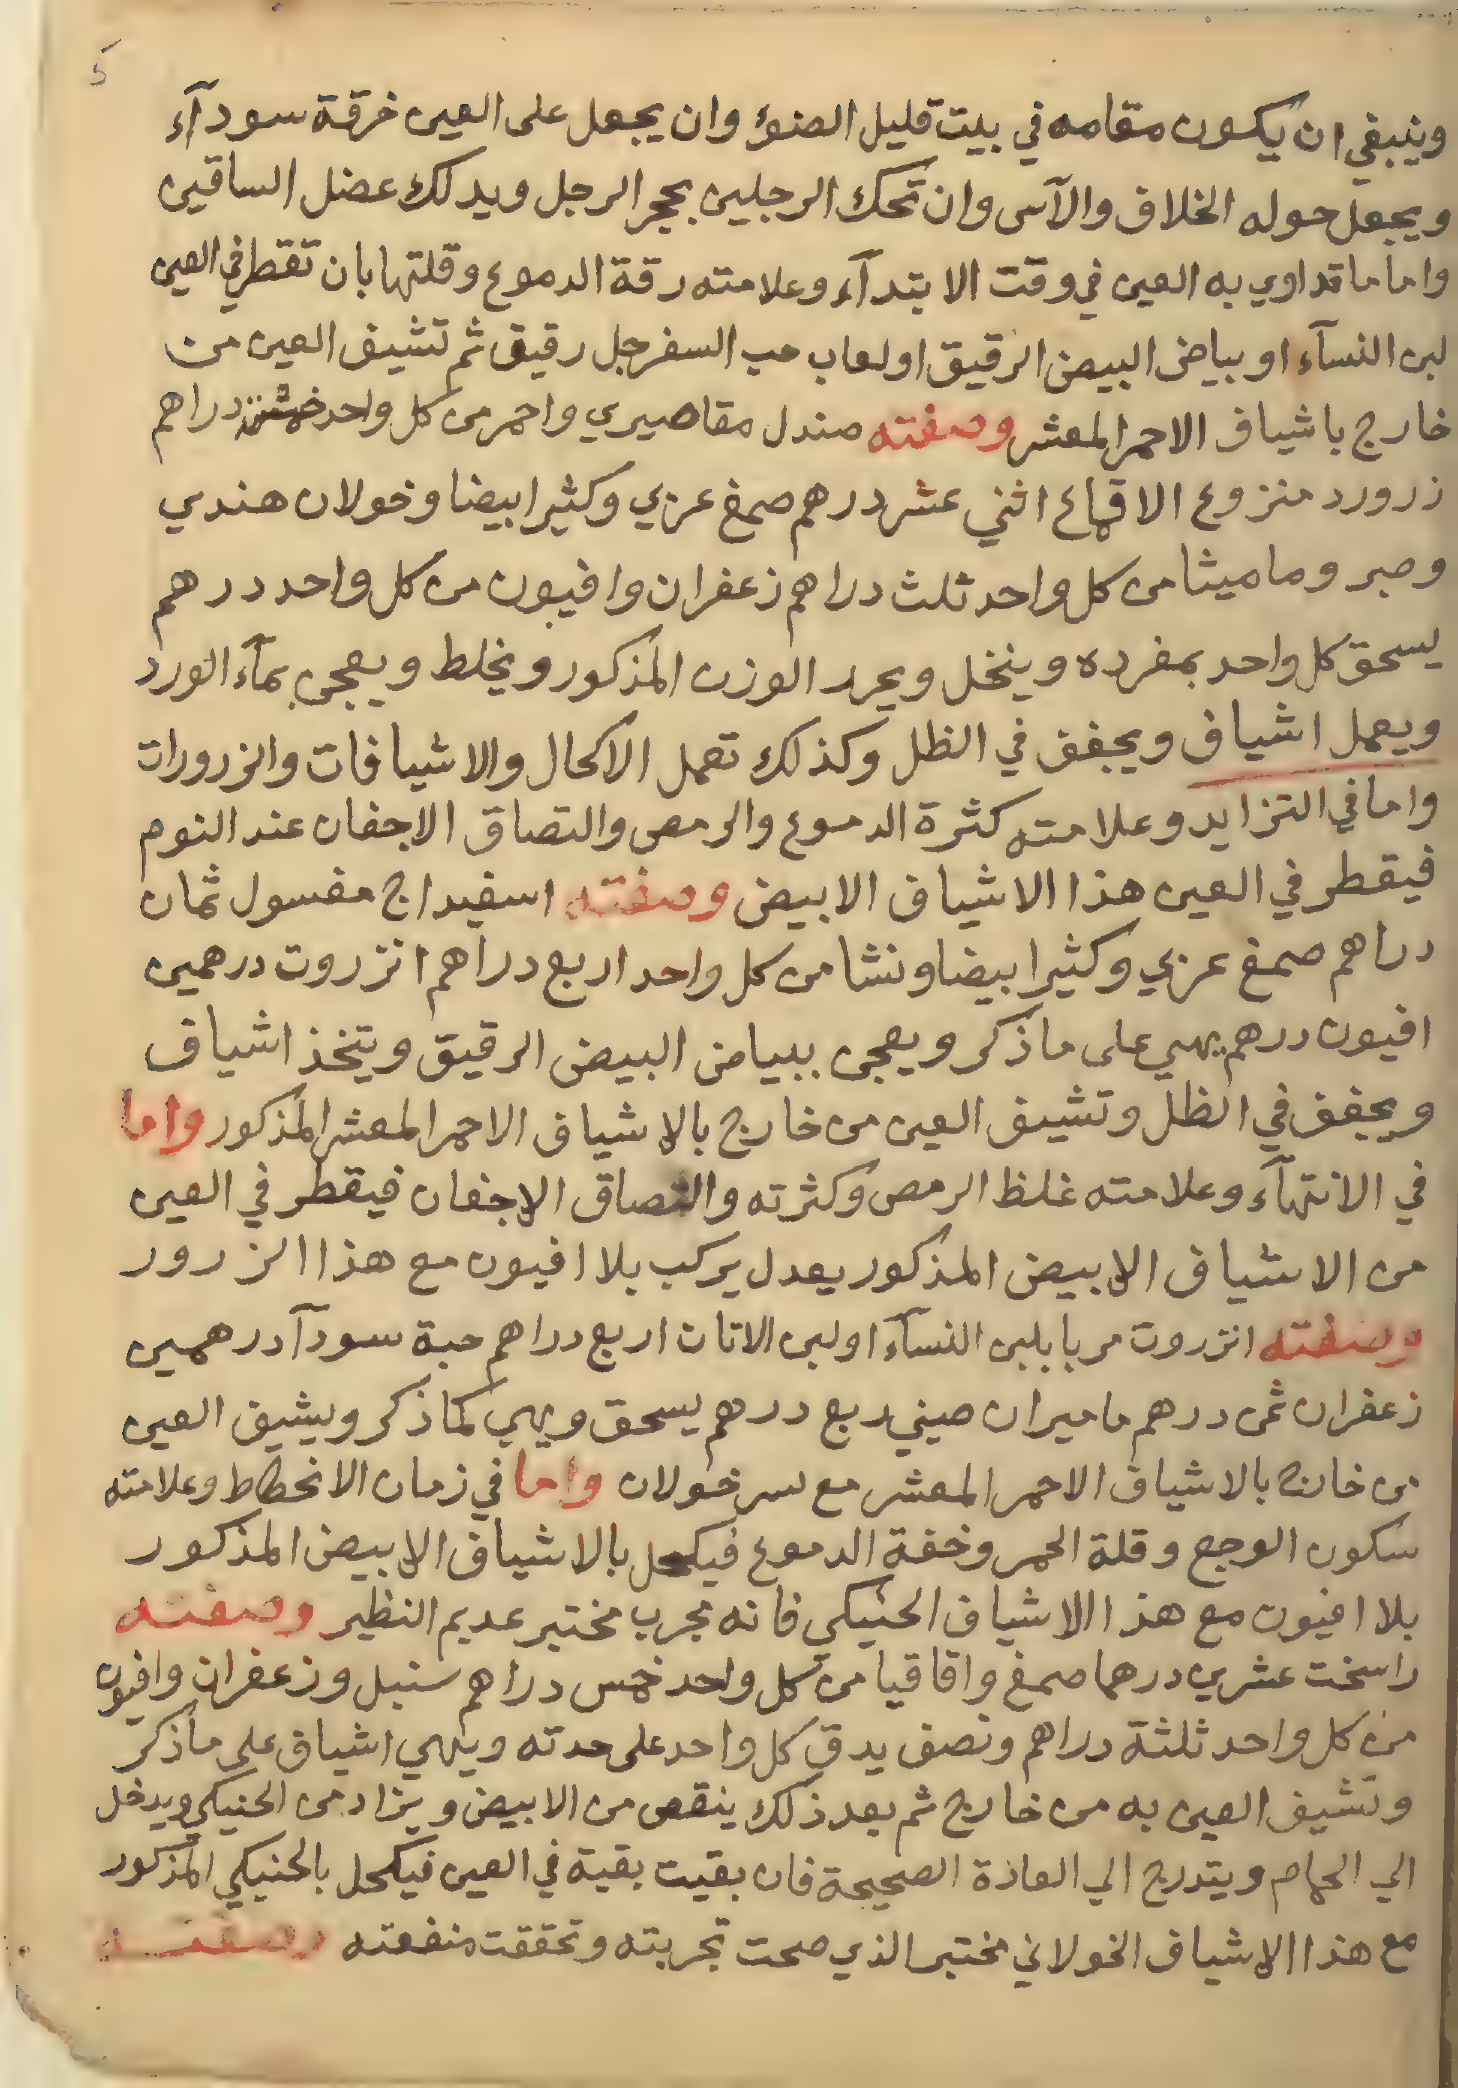 5
وينبغي ان يكون مقامه في بيت قليل الضوء وان يجعل على العين خرقة سودآء
ويجعل حوله الخلاف والآس وان تحك الرجلين بحجر الرجل ويدلك عضل الساقين
واما ما تداوي به العين في وقت الابتدآء وعلامته رقة الدموع وقلتها بان تقطر في العين
لبن النسآء او بياض البيض الرقيق او لعاب حب السفرجل رقيق ثم تشيف العين من
خارج باشياف الاحمر المعشر وصفته صندل مقاصيري واحمر من كل واحد خمسة دراهم
زرورد منزوع الاقماع اثني عشر درهم صمغ عربي وكثيرا بيضا وخولان هندي
وصبر وماميثا من كل واحد ثلث دراهم زعفران وافيون من كل واحد درهم
يسحق كل واحد بمفرده وينخل ويحرر الوزن المذكور ويخلط ويعجن بمآء الورد
ويعمل اشياف ويجفف في الظل وكذلك تعمل الاكحال والاشيافات والزرورات
واما في التزايد وعلامته كثرة الدموع والرمص والتصاق الاجفان عند النوم
فيقطر في العين هذا الاشياف الابيض وصفته اسفيداج مغسول ثمان
دراهم صمغ عربي وكثيرا بيضا ونشا من كل واحد اربع دراهم انزروت درهمين
افيون درهم يهي على ما ذكر ويعجن ببياض البيض الرقيق ويتخذ اشياف
ويجفف في الظل وتشيف العين من خارج بالاشياف الاحمر المعشر المذكور واما
في الانتهآء وعلامته غلظ الرمص وكثرته والتصاق الاجفان فيقطر في العين
من الاشياف الابيض المذكور يعدل يركب بلا افيون مع هذا الزرور
وصفته انزروت مربا بلبن النسآء او لبن الاتان اربع دراهم حبة سودآ درهمين
زعفران ثمن درهم ماميران صيني ربع درهم يسحق ويهي كما ذكر ويشيف العين
من خارج بالاشياف الاحمر المعشر مع سر خولان واما في زمان الانحطاط وعلامته
سكون الوجع وقلة الحمر وخفة الدموع فيكحل بالاشياف الابيض المذكور
بلا افيون مع هذا الاشياف الحنيكي فانه مجرب مختبر عديم النظير وصفته
راسخت عشرين درهما صمغ واقاقيا من كل واحد خمس دراهم سنبل وزعفران وافيون
من كل واحد ثلثة دراهم ونصف يدق كل واحد على حدته ويهي اشياف على ما ذكر
وتشيف العين به من خارج ثم بعد ذلك ينقص من الابيض ويزاد من الحنيكي ويدخل
الي الحمام ويتدرج الي العادة الصحيحة فان بقيت بقية في العين فيكحل بالحنيكي المذكور
مع هذا الاشياف الخولاني مختبر الذي صحت تجربته وتحققت منفعته وصفته